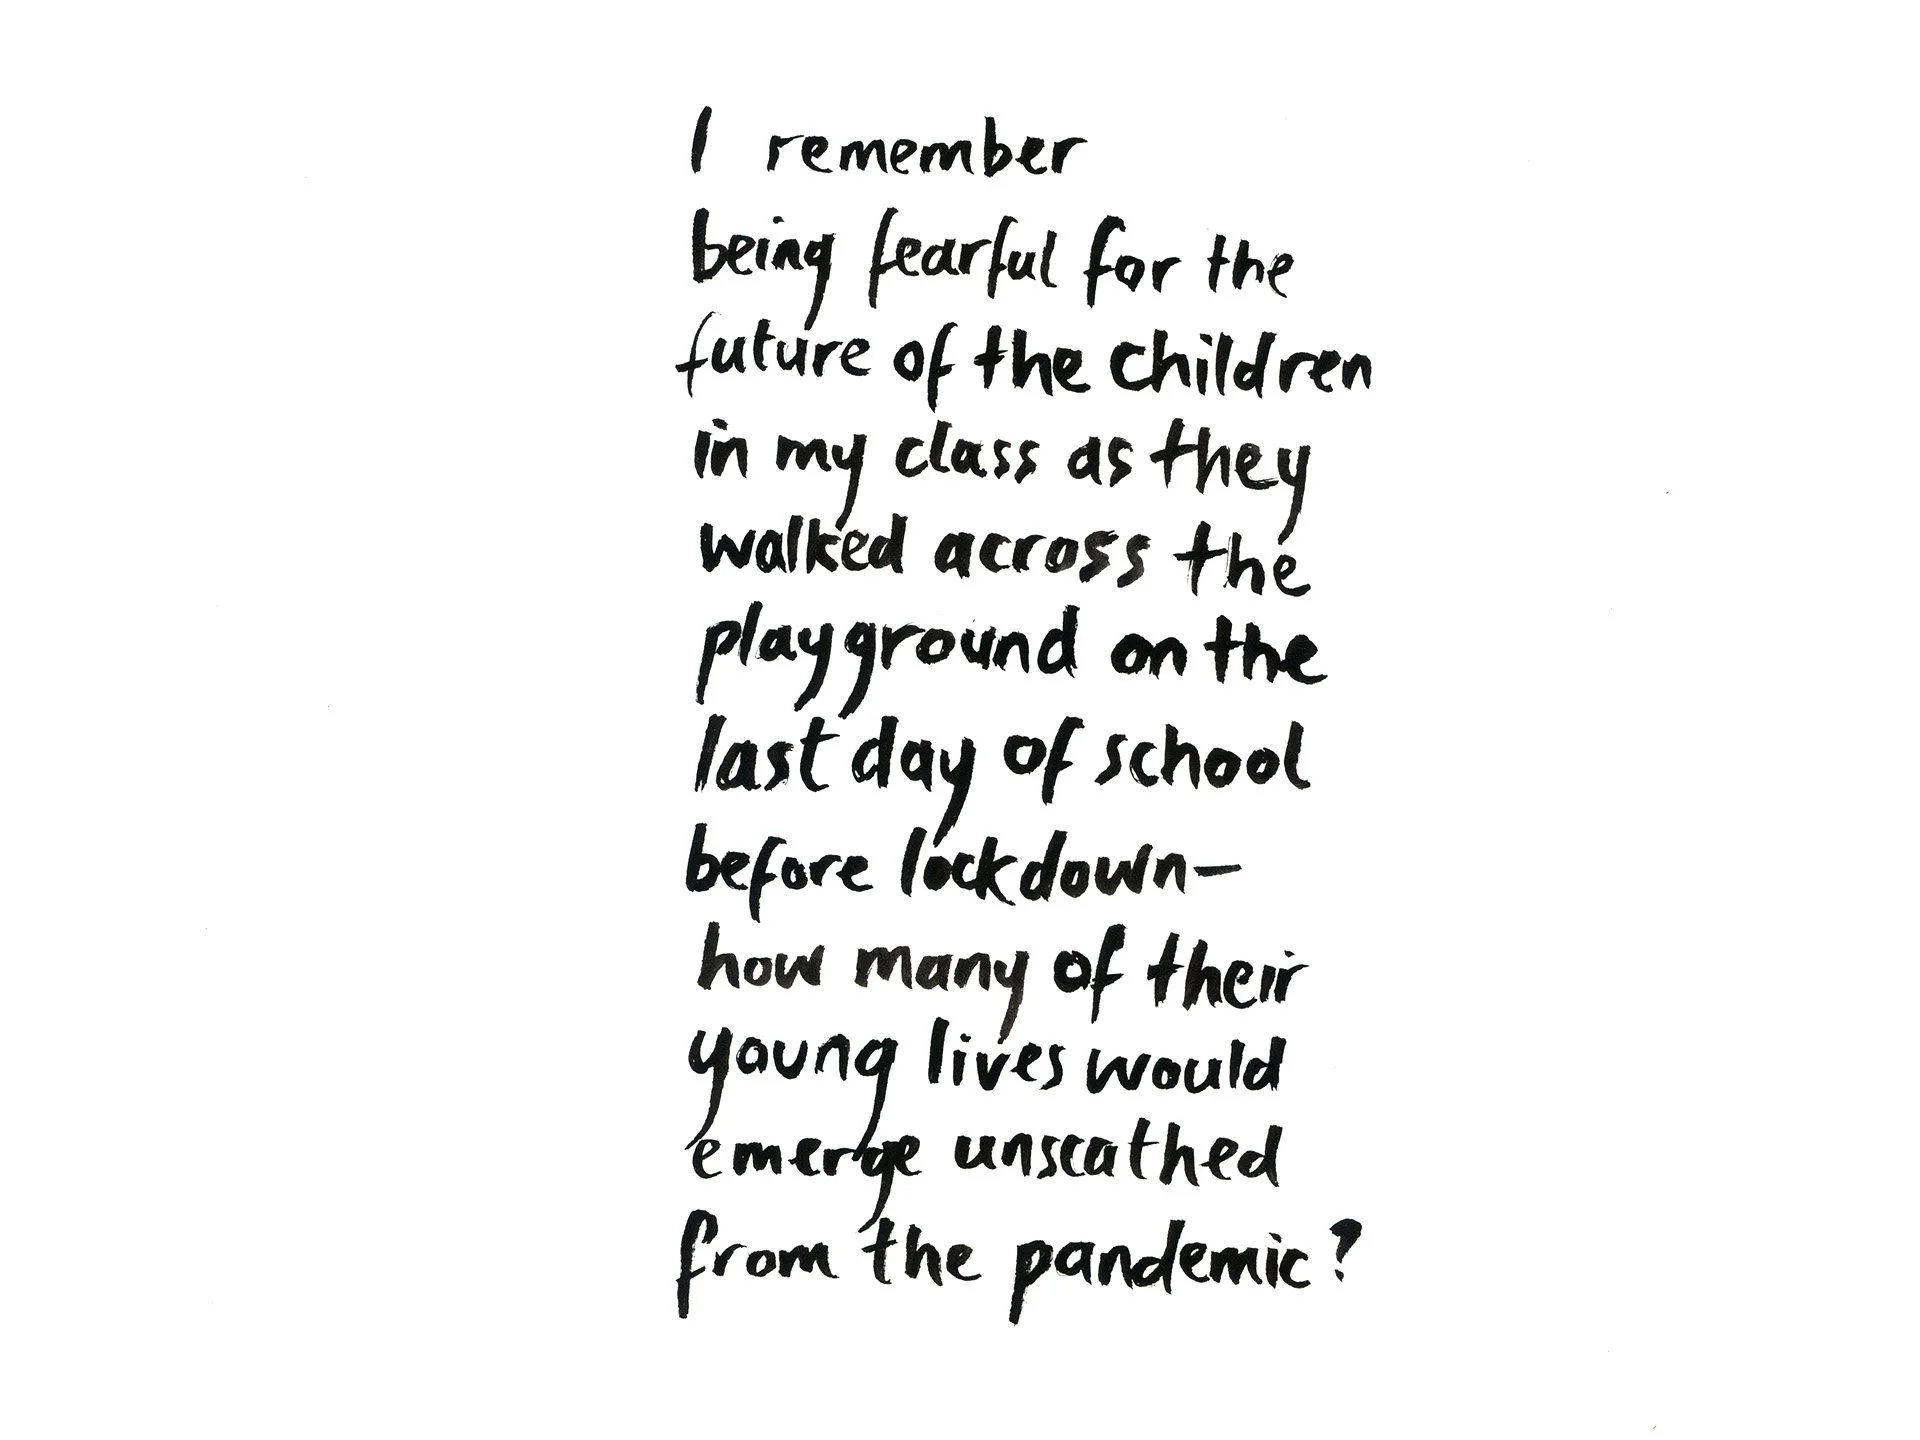 I remember
being fearful for the
future of the children
in my class as they
walked across the
playground on the
last day of school
before lockdown—
how many of their
young lives would
emerge unscathed
from the pandemic?